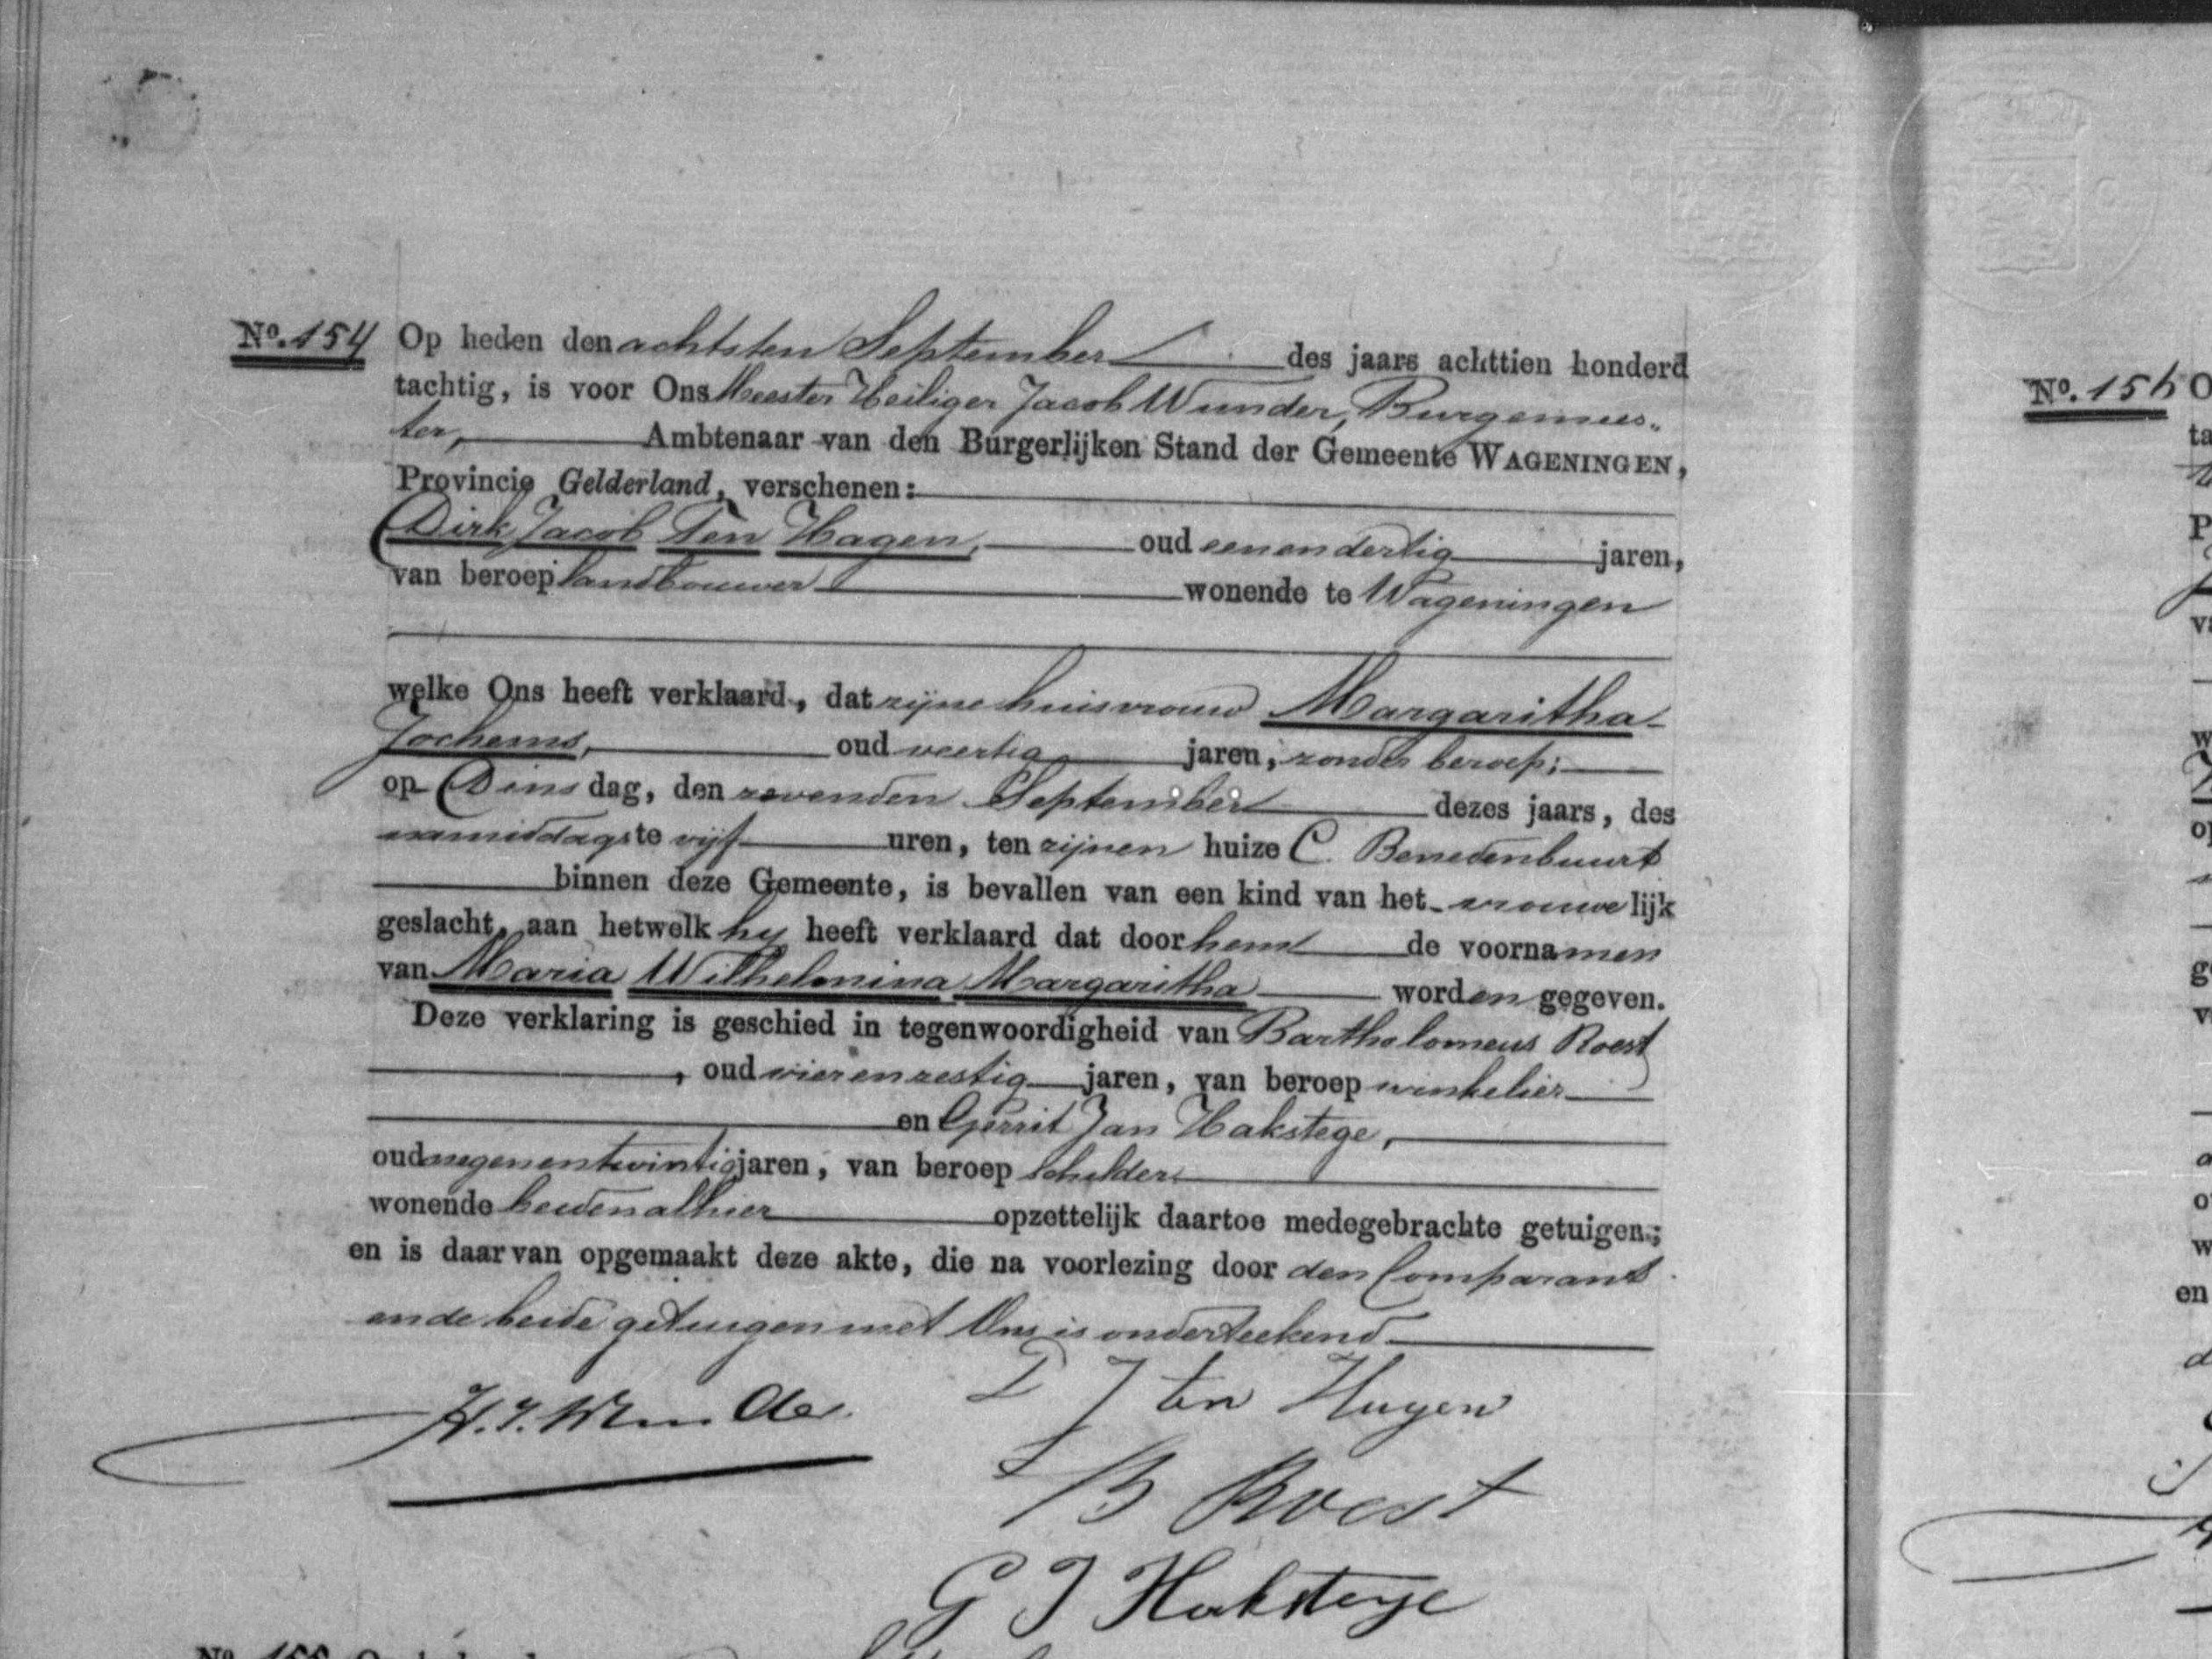 No. 154 Op heden den achtsten September des jaars achttien honderd
tachtig, is voor Ons Meester Heiliger Jacob Wunder, Burgemees„
ter, Ambtenaar van den Burgerlijken Stand der Gemeente WAGENINGEN,
Provincie Gelderland, verschenen:
Dirk Jacob Ten Hagen, oud eenendertig jaren,
van beroep landbouwer wonende te Wageningen
welke Ons heeft verklaard, dat zijne huisvrouw Margaritha
Jochems, oud veertig jaren, zonder beroep;
op Dinsdag, den zevenden September dezes jaars, des
namiddags te vijf uren, ten zijnen huize C. Benedenbuurt
binnen deze Gemeente, is bevallen van een kind van het vrouwelijk
geslacht, aan hetwelk hij heeft verklaard dat door hem de voornamen
van Maria Wilhelmina Margaritha worden gegeven.
Deze verklaring is geschied in tegenwoordigheid van Bartholomeus Roest
, oud vierenzestig jaren, van beroep winkelier
en Gerrit Jan Hakstege,
oud negenentwintig jaren, van beroep schilder
wonende beiden alhier opzettelijk daartoe medegebrachte getuigen;
en is daarvan opgemaakt deze akte, die na voorlezing door den Comparant
en de beide getuigen met Ons is onderteekend
H.J. Wunder D J ten Hagen
B Roest
G J Hakstege
No. 155
No. 156 O
ta
P
v
w
op
g
v
o
w
en
d